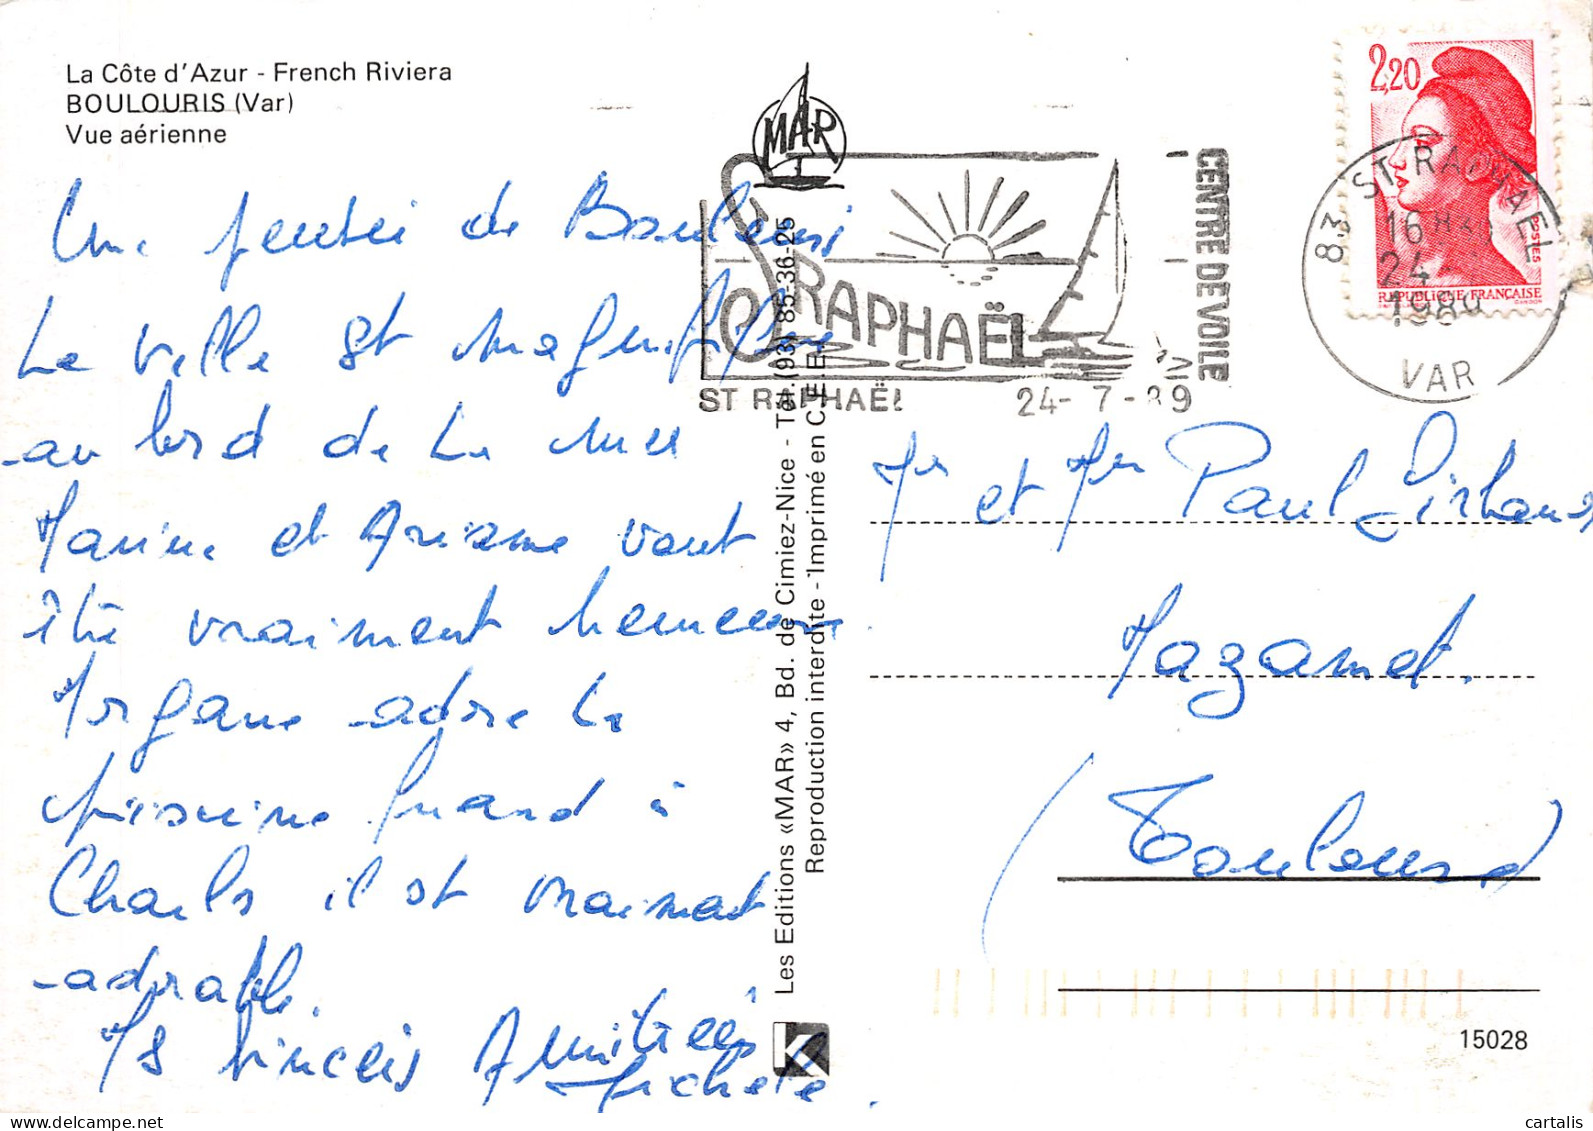 La Côte d'Azur - French Riviera
BOULOURIS (Var)
Vue aérienne
Une pensée de Boulouris
La ville est magnifique
au bord de la mer
Marine et Ariane vont
être vraiment heureuses.
Morgane adore la
piscine quand à
Charles il est vraiment
adorable.
Ms sincères Amitiés
Michele.
MAR
Les Editions «MAR» 4, Bd. de Cimiez-Nice - Tél. (93) 85-36-25
Reproduction interdite - Imprimé en C.E.E.
K
ST RAPHAËL
CENTRE DE VOILE
ST RAPHAËL 24-7-89
2,20
POSTES
REPUBLIQUE FRANÇAISE
83 ST RAPHAEL
16H
24
1989
VAR
Mr et Mme Paul
Mazamet.
(Toulouse)
15028
cartalis